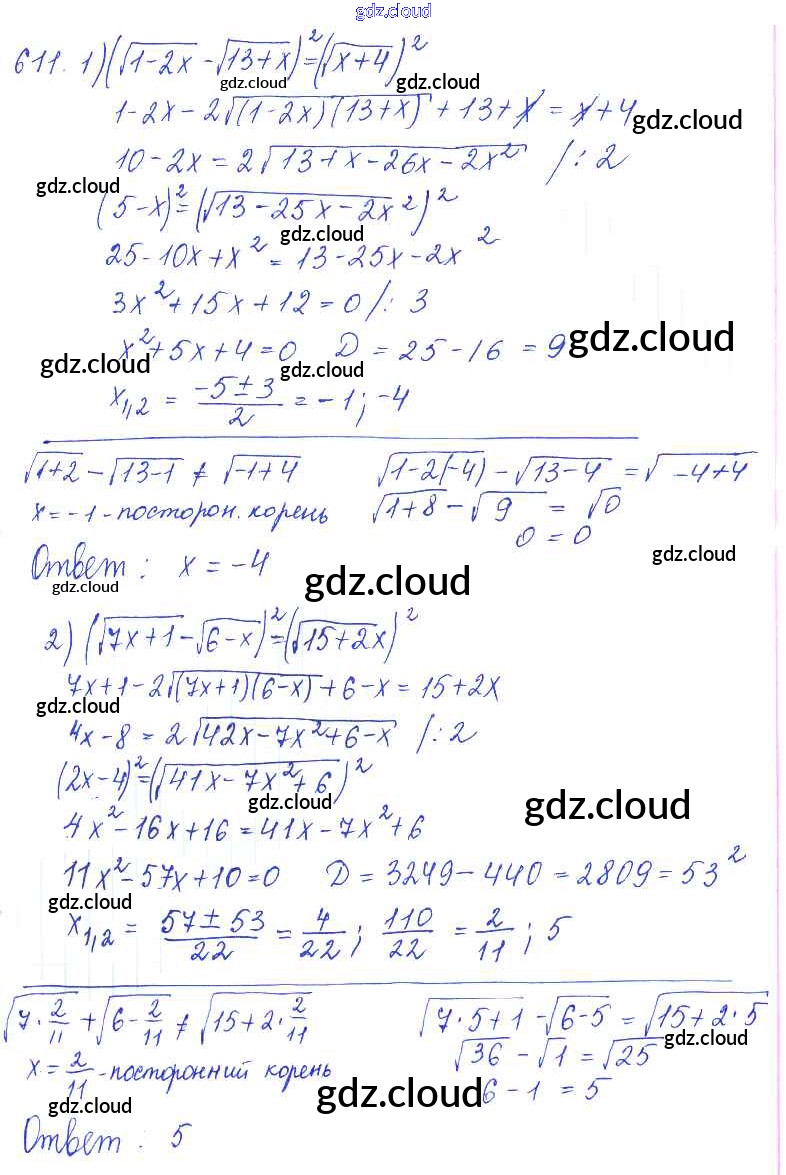 gdz.cloud
611. 1) (√(1-2x) - √(13+x))² = (√(x+4))²
gdz.cloud gdz.cloud
1-2x-2√((1-2x)(13+x)) + 13+x = x+4
gdz.cloud
10-2x = 2√(13+x-26x-2x²) /: 2
gdz.cloud
(5-x)² = (√(13-25x-2x²))²
gdz.cloud
25-10x+x² = 13-25x-2x²
3x²+15x+12=0 /: 3
x²+5x+4=0 D = 25-16 = 9
gdz.cloud gdz.cloud gdz.cloud
x₁,₂ = (-5±3)/2 = -1; -4
√(1+2) - √(13-1) ≠ √(-1+4) √(1-2(-4)) - √(13-4) = √(-4+4)
x=-1 - посторон. корень √(1+8) - √9 = √0
0 = 0
gdz.cloud
Ответ: x = -4
gdz.cloud gdz.cloud
2) (√(7x+1) - √(6-x))² = (√(15+2x))²
7x+1-2√((7x+1)(6-x)) + 6-x = 15+2x
gdz.cloud
4x-8 = 2√(42x-7x²+6-x) /: 2
(2x-4)² = (√(41x-7x²+6))²
gdz.cloud gdz.cloud
4x²-16x+16 = 41x-7x²+6
11x²-57x+10=0 D = 3249-440 = 2809 = 53²
gdz.cloud
x₁,₂ = (57±53)/22 = 4/22; 110/22 = 2/11; 5
√(7·2/11) + √(6-2/11) ≠ √(15+2·2/11) √(7·5+1) - √(6-5) = √(15+2·5)
gdz.cloud
√36 - √1 = √25
x = 2/11 - посторонний корень
6-1 = 5
gdz.cloud gdz.cloud gdz.cloud
Ответ: 5